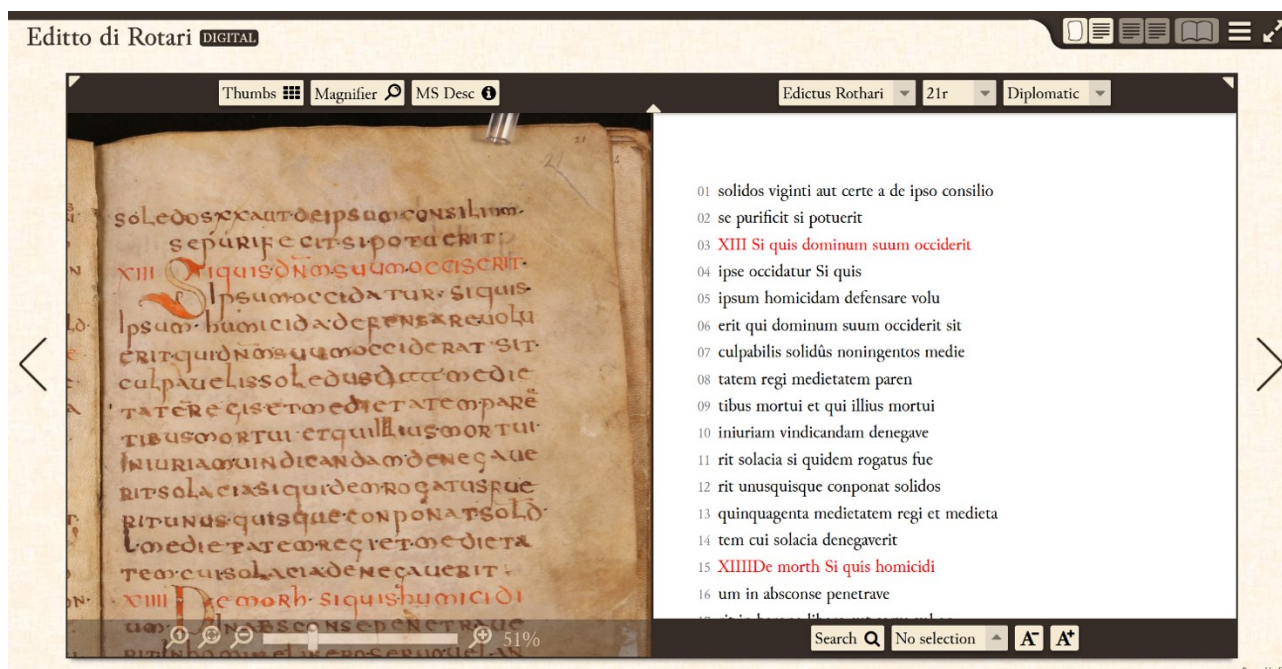 Editto di Rotari DIGITAL
Thumbs Magnifier MS Desc
Edictus Rothari 21r Diplomatic
21
soledosxxaut·deipsumconsilium·
sepurifecit·sipotuerit:
XIII Siquisdn̄msuumocciserit·
Ipsumoccidatur·siquis·
Ipsum·humicida·defensareuolu
erit·quidn̄msuumocciderat·sit·
culpauelissoledus
tatēregisetmedietatemparē
tibusmortui·etquilliusmortui·
Iniuriamuindicandamdenegaue
ritsolaciasiquidemrogatusfue
ritunusquisqueconponatsold·
l·medietatemregietmedieta
tem·cuisolaciadenegauerit:
XIIII Demorh·siquishumicidi
um·Inabsconsepenetraue
51%
01 solidos viginti aut certe a de ipso consilio
02 se purificit si potuerit
03 XIII Si quis dominum suum occiderit
04 ipse occidatur Si quis
05 ipsum homicidam defensare volu
06 erit qui dominum suum occiderit sit
07 culpabilis solidûs noningentos medie
08 tatem regi medietatem paren
09 tibus mortui et qui illius mortui
10 iniuriam vindicandam denegave
11 rit solacia si quidem rogatus fue
12 rit unusquisque conponat solidos
13 quinquagenta medietatem regi et medieta
14 tem cui solacia denegaverit
15 XIIIIDe morth Si quis homicidi
16 um in absconse penetrave
Search No selection A- A+